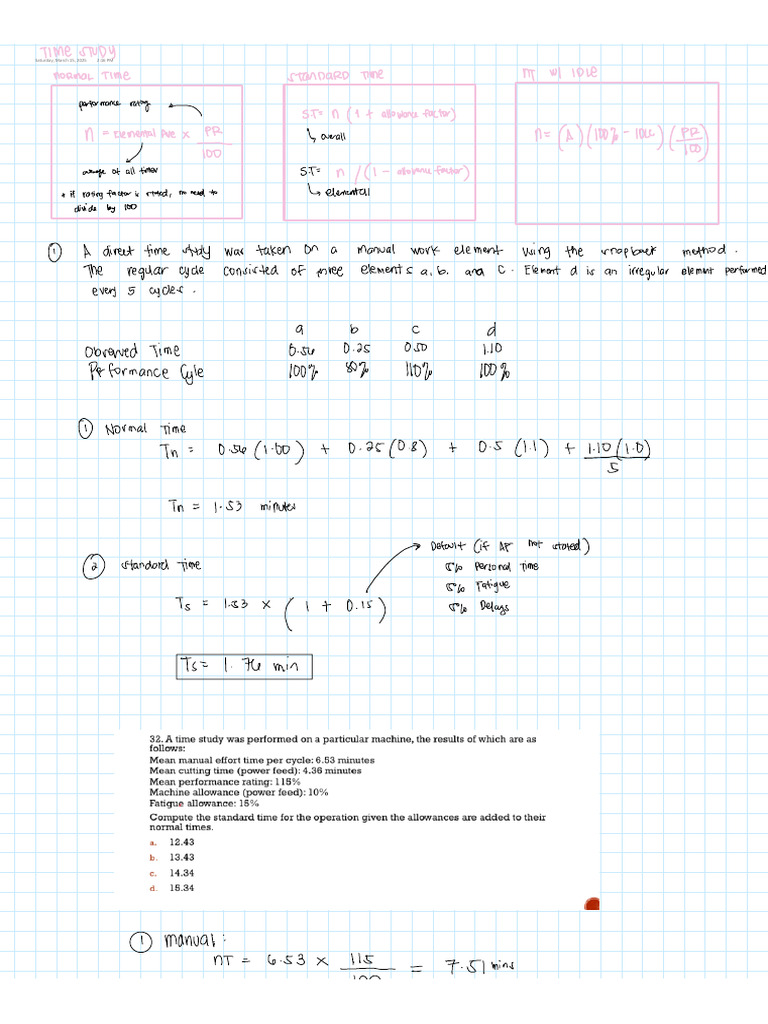 TIME STUDY
Saturday, March 15, 2025 2:36 PM
NORMAL TIME
STANDARD TIME
NT w/ IDLE
performance rating
n = Elemental Ave x PR/100
average of all times
* if rating factor is stated, no need to
divide by 100
S.T = n (1 + allowance factor)
overall
S.T = n / (1 - allowance factor)
elemental
n = (A) (100% - IDLE) (PR/100)
① A direct time study was taken on a manual work element using the snapback method.
The regular cycle consisted of three elements a, b, and c. Element d is an irregular element performed
every 5 cycles.
a b c d
Observed Time 0.56 0.25 0.50 1.10
Performance Cyle 100% 80% 110% 100%
① Normal Time
Tn = 0.56 (1.00) + 0.25 (0.8) + 0.5 (1.1) + 1.10 (1.0)/5
Tn = 1.53 minutes
② Standard Time
Default (if AF not stated)
5% Personal Time
5% Fatigue
5% Delays
Ts = 1.53 x (1 + 0.15)
Ts = 1.76 min
32. A time study was performed on a particular machine, the results of which are as
follows:
Mean manual effort time per cycle: 6.53 minutes
Mean cutting time (power feed): 4.36 minutes
Mean performance rating: 115%
Machine allowance (power feed): 10%
Fatigue allowance: 15%
Compute the standard time for the operation given the allowances are added to their
normal times.
a. 12.43
b. 13.43
c. 14.34
d. 15.34
① manual:
NT = 6.53 x 115/100 = 7.51 mins